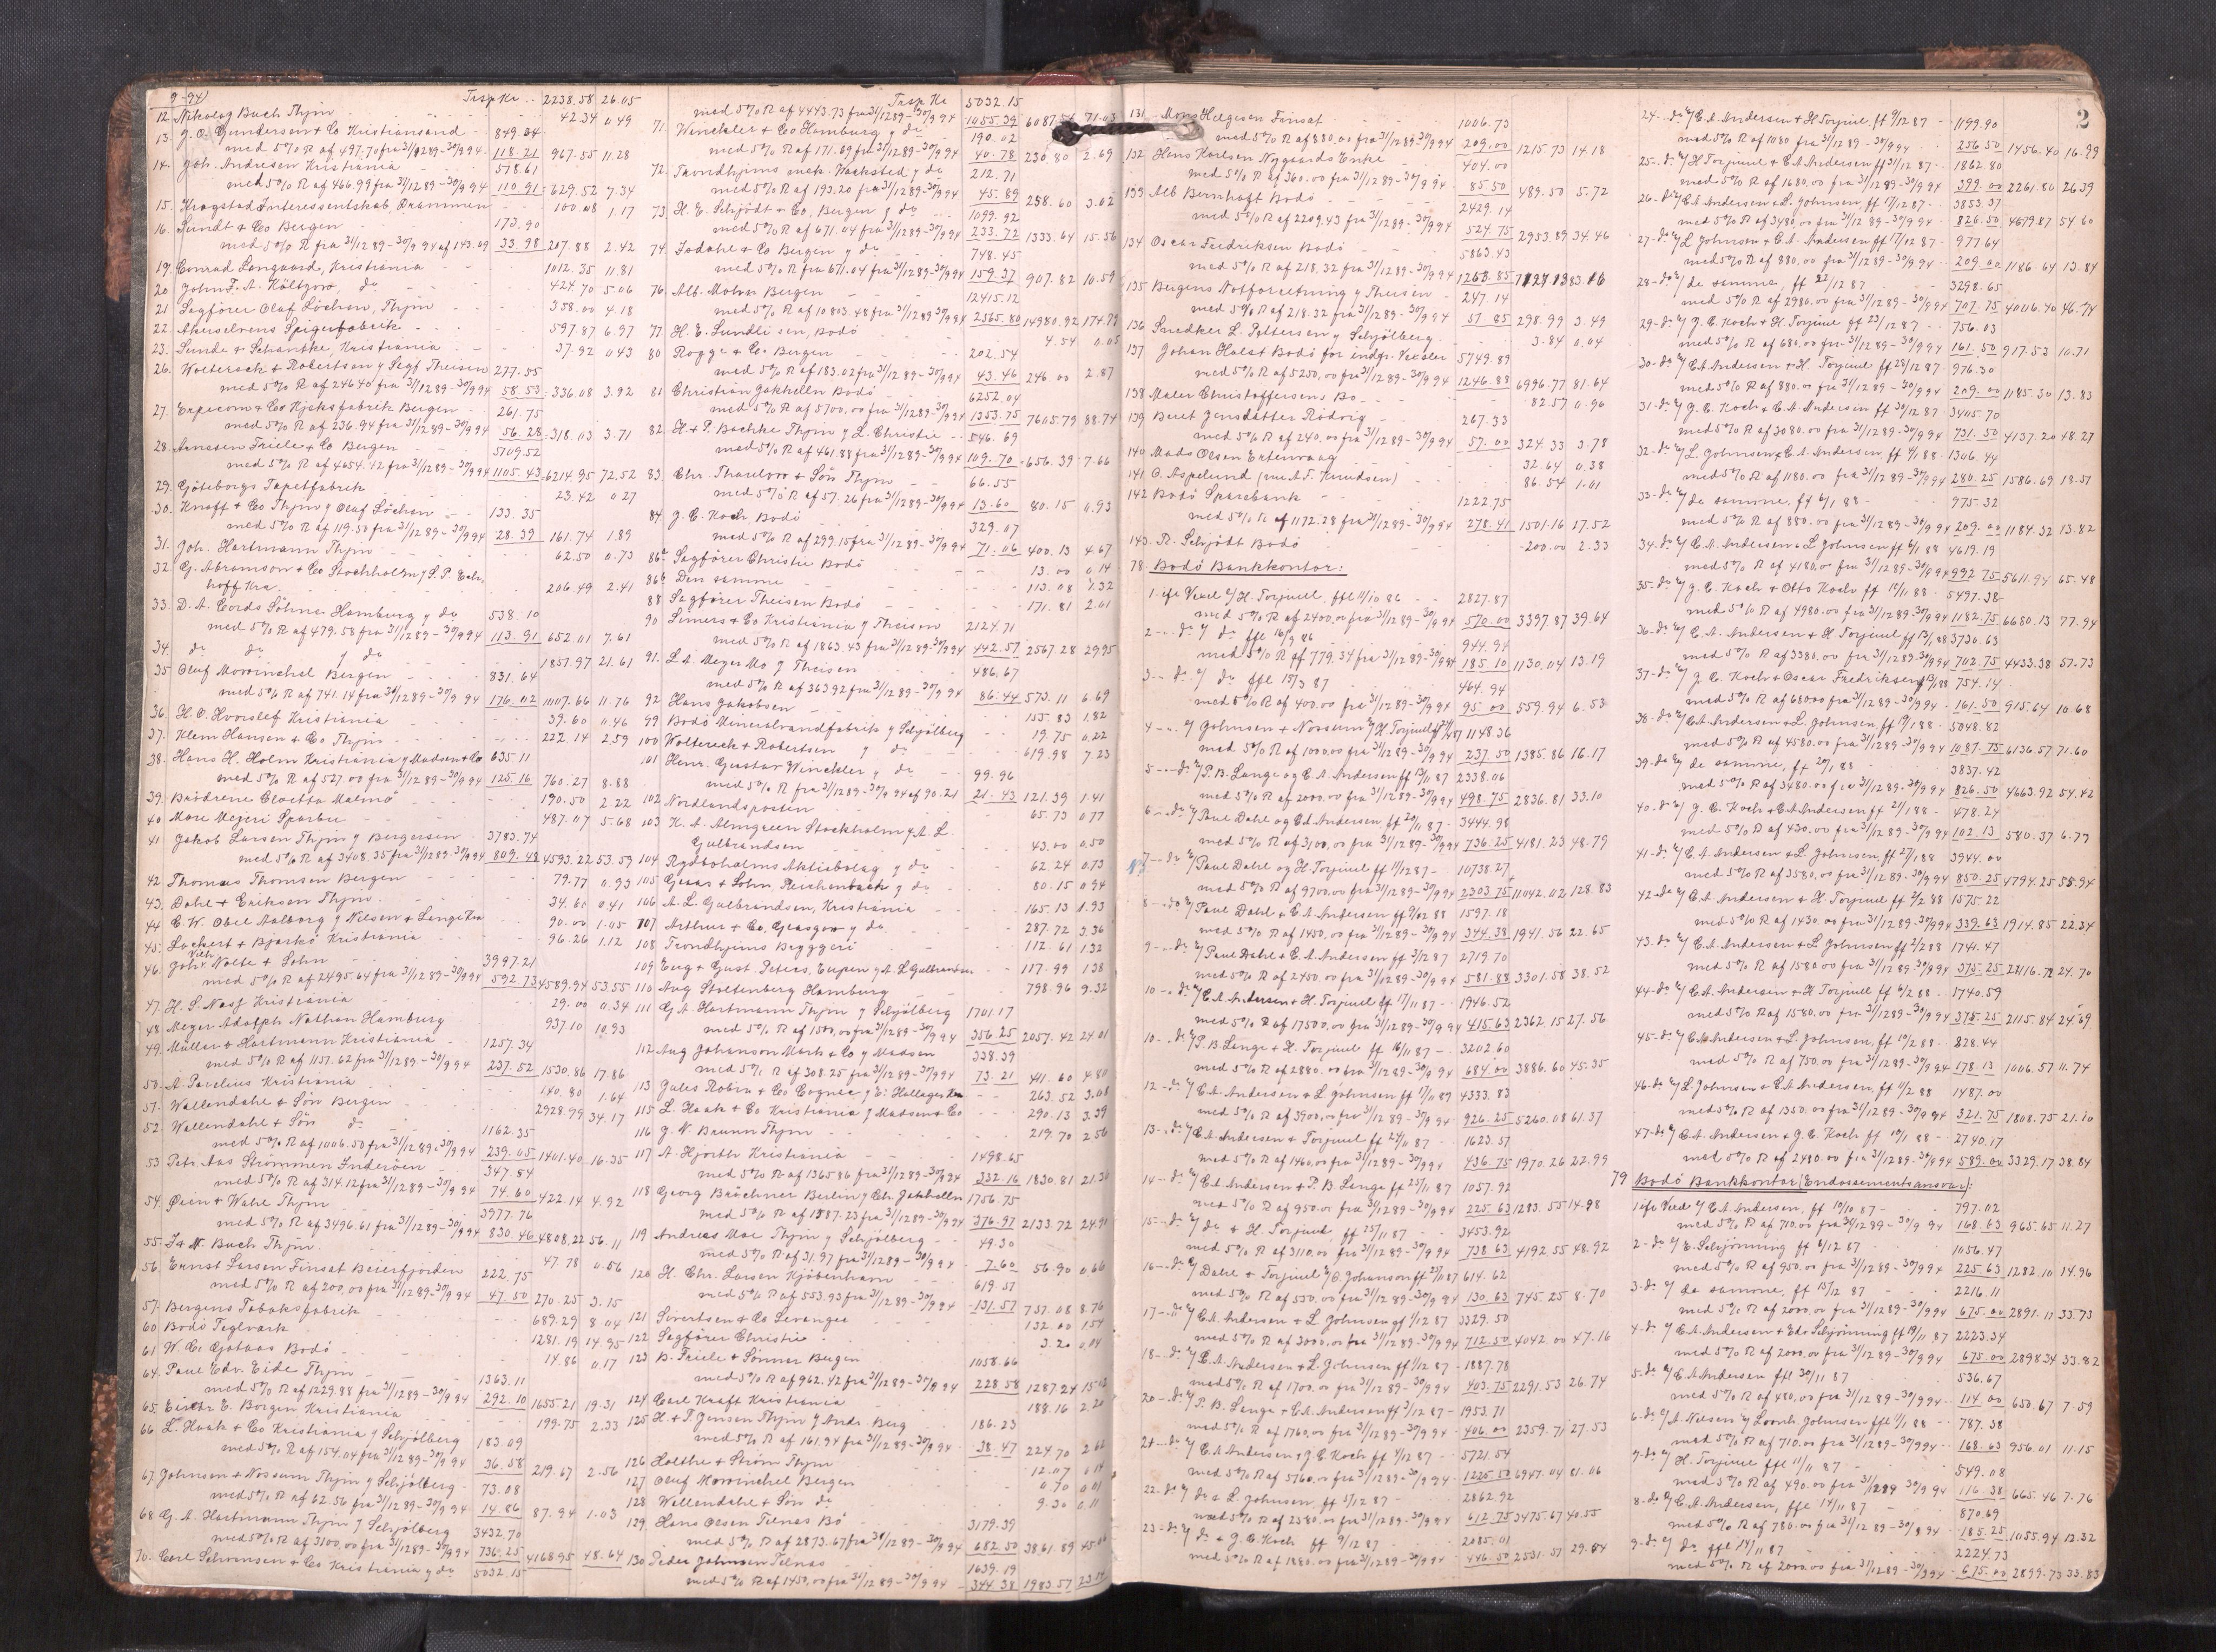 9-94) Trsp Kr .. 2238.58 26.05
12. Nikolag Buch Thjm 42.34 0.49
13. J. O. Gundersen & Co Kristiansand 849.34
med 5% R af 497.70 fra 31/12 89-30/9 94 118.21 967.55 11.28
14. Joh. Andresen Kristiania 578.61
med 5% R af 466.99 fra 31/12 89-30/9 94 110.91 629.52 7.34
15. Kragstad Interessentskab, Drammen 100.08 1.17
16. Sundt & Co Bergen 173.90
med 5% R fra 31/12 89-30/9 94 af 143.09 33.98 207.88 2.42
19. Conrad Langaard, Kristiania 1012.35 11.81
20 John F. A. Höltzow, do 424.70 5.06
21 Sagförer Olaf Löchen, Thjm 358.00 4.18
22. Akerselvens Spigerfabrik 597.87 6.97
23. Sunde & Schanbke, Kristiania 37.92 0.43
26. Woltereck & Robertson y Sagf Theisen 277.55
med 5% R af 246.40 fra 31/12 89-30/9 94 58.53 336.08 3.92
27. Erpecom & Co Kjeksfabrik Bergen 261.75
med 5% R af 236.94 fra 31/12 89-30/9 94 56.28 318.03 3.71
28. Arnesen Friele & Co Bergen 5109.52
med 5% R af 4654.42 fra 31/12 89-30/9 94 1105.43 6214.95 72.52
29. Göteborgs Tapetfabrik 23.42 0.27
30. Knoff & Co Thjm y Olaf Löchen 133.35
med 5% R af 119.50 fra 31/12 89-30/9 94 28.39 161.74 1.89
31. Joh. Hartmann Thjm 62.50 0.73
32 G. Abramson & Co Stockholm y S. P. Eck-
hoff Kra. 206.49 2.41
33. D. A. Cords Söhne Hamburg y do 538.10
med 5% R af 479.58 fra 31/12 89-30/9 94 113.91 652.01 7.61
34. do do y do 1851.97 21.61
35 Oluf Mowinckel Bergen 831.64
med 5% R af 741.14 fra 31/12 89-30/9 94 176.02 1007.66 11.76
36. H. O. Hvorslef Kristiania 39.60 0.46
37. Klem Hansen & Co Thjm 222.14 2.59
38. Hans H. Holm Kristiania y Madsen & Co 635.11
med 5% R af 527.00 fra 31/12 89-30/9 94 125.16 760.27 8.88
39. Brödrene Cloetta Malmö 190.50 2.22
40 Mære Mejeri Sparbu 487.07 5.68
41 Jakob Larsen Thjm y Bergersen 3783.74
med 5% R af 3408.35 fra 31/12 89-30/9 94 809.48 4593.22 53.59
42 Thomas Thomsen Bergen 79.77 0.93
43. Dahl & Eriksen Thjm 34.60 0.41
44 C. W. Obel Aalborg y Nilsen & Lange Kra 90.00 1.05
45. Lockert & Bjarkö Kristiania 96.26 1.12
46. Joh. Vilh. Nolte & Sohn 3997.21
med 5% R af 2495.64 fra 31/12 89-30/9 94 592.73 4589.94 53.55
47. H. S. Nass Kristiania 29.00 0.34
48 Meyer Adolph Nathan Hamburg 937.10 10.93
49. Müller & Hartmann Kristiania 1257.34
med 5% R af 1151.62 fra 31/12 89-30/9 94 237.52 1530.86 17.86
50. A. Pavelius Kristiania 140.80 1.64
51. Wallendahl & Sön Bergen 2928.79 34.17
52 Wallendahl & Sön do 1162.35
med 5% R af 1006.50 fra 31/12 89-30/9 94 239.05 1401.40 16.35
53 Petr. Aas Strömmen Inderöen 347.54
med 5% R af 314.12 fra 31/12 89-30/9 94 74.60 422.14 4.92
54. Öien & Wahl Thjm 3977.76
med 5% R af 3496.61 fra 31/12 89-30/9 94 830.46 4808.22 56.11
55. Fr. N. Buch Thjm. 47.78 0.56
56. Ernst Larsen Finsæt Beierfjorden 222.75
med 5% R af 200.00 fra 31/12 89-30/9 94 47.50 270.25 3.15
57. Bergens Tobaksfabrik 689.29 8.04
60 Bodö Teglværk 1281.19 14.95
61 W. C. Götaas Bodö 14.86 0.17
64. Paul Edv. Eide Thjm 1363.11
med 5% R af 1229.88 fra 31/12 89-30/9 94 292.10 1655.21 19.31
65. Eirchr E. Borgen Kristiania 199.75 2.33
66 L. Haak & Co Kristiania y Schjölberg 183.09
med 5% R af 154.04 fra 31/12 89-30/9 94 36.58 219.67 2.56
67. Johnsen & Nossum Thjm y Schjölberg 73.08
med 5% R af 62.56 fra 31/12 89-30/9 94 14.86 87.94 1.03
68 G. A. Hartmann Thjm y Schjölberg 3432.70
med 5% R af 3100.00 fra 31/12 89-30/9 94 736.25 4168.95 48.64
70. Carl Schwensen & Co Kristiania y do 5032.15
Trsp. Kr 5032.15
med 5% R af 4443.73 fra 31/12 89-30/9 94 1055.39 6087.54 71.03
71. Winckler & Co Hamburg y do 190.02
med 5% R af 171.69 fra 31/12 89-30/9 94 40.78 230.80 2.69
72. Trondhjems mek. Værksted y do 212.71
med 5% R af 193.20 fra 31/12 89-30/9 94 45.89 258.60 3.02
73. H. E. Schjödt & Co, Bergen y do 1099.92
med 5% R af 671.04 fra 31/12 89-30/9 94 233.72 1333.64 15.56
74. Jadahl & Co Bergen y do 748.45
med 5% R fra 671.04 fra 31/12 89-30/9 94 159.37 907.82 10.59
76. Alb. Mohn Bergen 12415.12
med 5% R af 10803.48 fra 31/12 89 30/9 94 2565.80 14980.92 174.79
77 H. E. Sundli sen, Bodö 4.54 0.05
80 Rogge & Co. Bergen 202.54
med 5% R af 183.02 fra 31/12 89-30/9 94 43.46 246.00 2.87
81 Christian Jakhelln Bodö 6252.04
med 5% R af 5700.00 fra 31/12 89-30/9 94 1353.75 7605.79 88.74
82. H. & P. Bachke Thjm y L. Christie 546.69
med 5% R af 461.88 fra 31/12 89-30/9 94 109.70 656.39 7.66
83. Chr. Thaulow & Sön Thjm 66.55
med 5% R af 57.26 fra 31/12 89-30/9 94 13.60 80.15 0.93
84. J. C. Koch, Bodö 329.07
med 5% R af 299.15 fra 31/12 89-30/9 94 71.06 400.13 4.67
86a Sagförer Christie Bodö 13.00 0.14
86b Den samme 113.08 1.32
88 Sagförer Theisen Bodö 171.81 2.01
90 Simers & Co Kristiania y Theisen 2124.71
med 5% R af 1863.43 fra 31/12 89-30/9 94 442.57 2567.28 29.95
91. L. A. Meyer Mo y Theisen 486.67
med 5% R af 363.92 fra 31/12 89-30/9 94 86.44 573.11 6.69
92 Hans Jakobsen 155.83 1.82
99 Bodö Mineralvandfabrik y Schjölberg 19.75 0.22
100 Woltereck & Robertson y do 619.98 7.23
101 Henr. Gustav Winckler y do 99.96
med 5% R fra 31/12 89-30/9 94 af 90.21 21.43 121.39 1.41
102 Nordlandsposten 65.73 0.77
103 K. A. Almgreen Stockholm y A. L.
Gulbrandsen 43.00 0.50
104 Rydboholms Aktiebolag y do 62.24 0.73
105 Geaas & Sohn, Reichenbach y do 80.15 0.94
106 A. L. Gulbrandsen, Kristiania 165.13 1.93
107 Arthur & Co, Glasgow y do 287.72 3.36
108 Trondhjems Bryggeri 112.61 1.32
109 Eug & Gust. Peters, Eupen y A. L. Gulbrandsen 117.99 1.38
110 Aug Stoltenberg Hamburg 798.96 9.32
111 G. A. Hartmann Thjm y Schjölberg 1701.17
med 5% R af 1500.00 fra 31/12 89-30/9 94 356.25 2057.42 24.01
112 Aug Johanson Mark & Co y Madsen 338.39
med 5% R af 308.25 fra 31/12 89-30/9 94 73.21 411.60 4.80
113 Jules Robin & Co Cognac y E. Hallager Kra 263.52 3.08
115 L. Haak & Co Kristiania y Madsen & Co 290.13 3.39
116 J. N. Bruun Thjm 219.70 2.56
117 A Hjorth Kristiania 1498.65
med 5% R af 1365.86 fra 31/12 89-30/9 94 332.16 1830.81 21.36
118 Georg Brückner Berlin y Chr. Jakhelln 1756.75
med 5% R af 1587.23 fra 31/12 89-30/9 94 376.97 2133.72 24.90
119 Andreas Moe Thjm y Schjölberg 49.30
med 5% R af 31.97 fra 31/12 89-30/9 94 7.60 56.90 0.66
120 H. Chr. Larsen Kjöbenhavn 619.51
med 5% R af 553.93 fra 31/12 89-30/9 94 131.57 751.08 8.76
121 Sivertsen & Co Levanger 132.00 1.54
122 Sagförer Christie 3.20 0.04
123 B. Friele & Sönner Bergen 1058.66
med 5% R af 962.42 fra 31/12 89-30/9 94 228.58 1287.24 15.02
124 Carl Kraft Kristiania 188.16 2.20
125 H. & P. Jensen Thjm y Andr. Berg 186.23
med 5% R af 161.94 fra 31/12 89-30/9 94 38.47 224.70 2.62
126 Holthe & Ström Thjm 12.07 0.14
127 Oluf Mowinckel Bergen 0.70 0.01
128 Wallendahl & Sön do 9.30 0.11
129 Hans Olsen Tilnæs Bö 3179.39
med 5% R af 2873.67 fra 31/12 89-30/9 94 682.50 3861.89 45.06
130 Peder Johnsen Tilnæs 1639.19
med 5% R af 1450.00 fra 31/12 89-30/9 94 344.38 1983.57 23.14
2
131. Mons Helgesen Finsæt 1006.73
med 5% R af 880.00 fra 31/12 89-30/9 94 209.00 1215.73 14.18
132 Hans Karlsen Nygaards Enke 404.00
med 5% R af 360.00 fra 31/12 89-30/9 94 85.50 489.50 5.72
133 Alb Bernhoft Bodö 2429.14
med 5% R af 2209.43 fra 31/12 89-30/9 94 524.75 2953.89 34.46
134 Oscar Fredriksen Bodö 5863.43
med 5% R af 218.32 fra 31/12 89-30/9 94 1263.85 7127.13 83.16
135 Bergens Notforretning y Theisen 247.14
med 5% R af 218.32 fra 31/12 89-30/9 94 51.85 298.99 3.49
136 Snedker L. Pettersen y Schjölberg 3.84 0.04
137 Johan Halst Bodö for indgr. Vexler 5749.89
med 5% R af 5250.00 fra 31/12 89-30/9 94 1246.88 6996.77 81.64
138 Maler Christoffersens Bo 82.57 0.96
139 Beret Jensdatter Rödvig 267.33
med 5% R af 240.00 fra 31/12 89-30/9 94 57.00 324.33 3.78
140 Mads Olsen Ertenvaag 32.64 0.38
141 O. Aspelund (ved A. F. Knudsen) 86.54 1.01
142 Bodö Sparebank 1222.75
med 5% R af 1172.28 fra 31/12 89-30/9 94 278.41 1501.16 17.52
143. R. Schjödt Bodö 200.00 2.33
78. Bodö Bankkontor:
1. ifl Vexel o/ H. Torjuul, ffl 11/10 86 2827.87
med 5% R af 2400.00 fra 31/12 89-30/9 94 570.00 3397.87 39.64
2 - do o/ do ffl 16/9 86 944.94
med 5% R af 779.34 fra 31/12 89-30/9 94 185.10 1130.04 13.19
3 - do o/ do ffl 15/3 87 464.94
med 5% R af 400.00 fra 31/12 89-30/9 94 95.00 559.94 6.53
4 - o/ Johnsen & Nossum o/ H. Torjuul 1148.36
med 5% R af 1000.00 fra 31/12 89-30/9 94 237.50 1385.86 16.17
5 - do o/ P. B. Lange og C. A. Andersen ff 13/11 87 2338.06
med 5% R af 2000.00 fra 31/12 89-30/9 94 498.75 2836.81 33.10
6 - do o/ Paul Dahl og C. A. Andersen ff 20/11 87 3444.98
med 5% R af 3100.00 fra 31/12 89-30/9 94 736.25 4181.23 48.79
7 - do o/ Paul Dahl og H. Torjuul ff 11/12 87 10738.27
med 5% R af 9700.00 fra 31/12 89-30/9 94 2303.75 11042.02 128.83
8 - do o/ Paul Dahl & C. A. Andersen ff 9/02 88 1597.18
med 5% R af 1450.00 fra 31/12 89-30/9 94 344.38 1941.56 22.65
9 - do o/ Paul Dahl & C. A. Andersen ff 3/12 87 2719.70
med 5% R af 2450.00 fra 31/12 89-30/9 94 581.88 3301.58 38.52
10 - do o/ C. A. Andersen & H. Torjuul ff 17/11 87 1946.52
med 5% R af 17500.00 fra 31/12 89-30/9 94 415.63 2362.15 27.56
10 - do o/ P. B. Lange & H. Torjuul ff 16/11 87 3202.60
med 5% R af 2880.00 fra 31/12 89-30/9 94 684.00 3886.60 45.35
12 - do o/ C. A. Andersen & L. Johnsen ff 17/11 89 4333.83
med 5% R af 3900.00 fra 31/12 89-30/9 94 926.25 5260.08 61.37
13 - do o/ C. A. Andersen & Torjuul ff 24/11 87 1623.51
med 5% R af 1460.00 fra 31/12 89-30/9 94 436.75 1970.26 22.99
14 - do o/ C. A. Andersen & P. B. Lange ff 23/11 87 1057.92
med 5% R af 950.00 fra 31/12 89-30/9 94 225.63 1283.55 14.98
15 - do o/ do & H. Torjuul, ff 25/11 87 3453.92
med 5% R af 3110.00 fra 31/12 89-30/9 94 738.63 4192.55 48.92
16 - do o/ Dahl & Torjuul o/ O. Johanson ff 23/11 87 614.62
med 5% R af 550.00 fra 31/12 89-30/9 94 130.63 745.25 8.70
17 - do o/ C. A. Andersen & L. Johnsen ff 1/12 87 3329.50
med 5% R af 3000.00 fra 31/12 89-30/9 94 712.50 4042.00 47.16
18 - do o/ C. A. Andersen & L. Johnsen ff 1/12 87 1887.78
med 5% R af 1700.00 fra 31/12 89-30/9 94 403.75 2291.53 26.74
20 - do o/ P. B. Lange & C. A. Andersen ff 3/12 87 1953.71
med 5% R af 1760.00 fra 31/12 89-30/9 94 406.00 2359.71 27.53
21 - do o/ C. A. Andersen & J. C. Koch ff 4/12 87 5721.54
med 5% R af 5160.00 fra 31/12 89-30/9 94 1225.50 6947.04 81.06
22 - do o/ do & L. Johnsen, ff 5/12 87 2862.92
med 5% R af 2580.00 fra 31/12 89-30/9 94 612.75 3475.67 40.55
23 - do o/ do & J. C. Koch ff 9/12 87 2085.01
med 5% R af 1880.00 fra 31/12 89-30/9 94 446.50 2531.51 29.54
24 - do o/ C. A. Andersen & H. Torjuul ff 9/12 87 1199.90
med 5% R af 1080 fra 31/12 89-30/9 94 256.50 1456.40 16.99
25 - do o/ H. Torjuul & C. A. Andersen ff 31/12 87 1862.80
med 5% R af 1680.00 fra 31/12 89-30/9 94 399.00 2261.80 26.39
26 - do o/ C. A. Andersen & L. Johnsen, ff 17/12 87 3853.37
med 5% R af 3480.00 fra 31/12 89-30/9 94 826.50 4679.87 54.60
27 - do o/ L. Johnsen & C. A. Andersen ff 17/12 87 977.64
med 5% R af 880.00 fra 31/12 89-30/9 94 209.00 1186.64 13.84
28 - do o/ de samme, ff 22/12 87 3298.65
med 5% R af 2980.00 fra 31/12 89-30/9 94 707.75 4006.40 46.74
29 - do o/ J. C. Koch & H. Torjuul ff 23/12 87 756.03
med 5% R af 680.00 fra 31/12 89-30/9 94 161.50 917.53 10.71
30 - do o/ C. A. Andersen & H. Torjuul ff 28/12 87 976.30
med 5% R af 880.00 fra 31/12 89-30/9 94 209.00 1185.30 13.83
31 - do o/ J. C. Koch & C. A. Andersen ff 30/12 87 3405.70
med 5% R af 3080.00 fra 31/12 89-30/9 94 731.50 4137.20 48.27
32 - do o/ L. Johnsen & C. A. Andersen, ff 4/1 88 1306.44
med 5% R af 1180.00 fra 31/12 89-30/9 94 280.25 1586.69 18.51
33 - do o/ de samme, ff 6/1 88 975.32
med 5% R af 880.00 fra 31/12 89-30/9 94 209.00 1184.32 13.82
34 - do o/ C. A. Andersen & L. Johnsen ff 6/1 88 4619.19
med 5% R af 4180.00 fra 31/12 89-30/9 94 992.75 5611.94 65.48
35 - do o/ J. C. Koch & Otto Koch ff 10/1 88 5497.38
med 5% R af 4980.00 fra 31/12 89-30/9 94 1182.75 6680.13 77.94
36 - do o/ C. A. Andersen & H. Torjuul ff 13/1 88 3730.63
med 5% R af 3380.00 fra 31/12 89-30/9 94 702.75 4433.38 57.73
37 - do o/ J. C. Koch & Oscar Fredriksen ff 13/1 88 754.14
med 5% R af 680.00 fra 31/12 89-30/9 94 161.50 915.64 10.68
38 - do o/ C. A. Andersen & L. Johnsen, ff 19/1 88 5048.82
med 5% R af 4580.00 fra 31/12 89-30/9 94 1087.75 6136.57 71.60
39 - do o/ de samme, ff 20/1 88 3837.42
med 5% R af 3480.00 fra 31/12 89-30/9 94 826.50 4663.92 54.42
40 - do o/ J. C. Koch & C. A. Andersen ff 21/1 88 478.24
med 5% R af 430.00 fra 31/12 89-30/9 94 102.13 580.37 6.77
41 - do o/ C. A. Andersen & L. Johnsen, ff 27/1 88 3944.00
med 5% R af 3580.00 fra 31/12 89-30/9 94 850.25 4794.25 55.94
42 - do o/ C. A. Andersen & H. Torjuul ff 2/2 88 1575.22
med 5% R af 1430.00 fra 31/12 89-30/9 94 339.63 1914.85 22.34
43 - do o/ C. A. Andersen & L. Johnsen ff 2/2 88 1741.47
med 5% R af 1580.00 fra 31/12 89-30/9 94 375.25 2116.72 24.70
44 - do o/ C. A. Andersen & H. Torjuul ff 6/2 88 1740.59
med 5% R af 1580.00 fra 31/12 89-30/9 94 375.25 2115.84 24.69
45 - do o/ C. A. Andersen & L. Johnsen, ff 10/2 88 828.44
med 5% R af 750.00 fra 31/12 89-30/9 94 178.13 1006.57 11.74
46 - do o/ L. Johnsen & C. A. Andersen, ff 11/2 88 1487.00
med 5% R af 1350.00 fra 31/12 89-30/9 94 321.75 1808.75 21.10
47 - do o/ C. A. Andersen & J. C. Koch ff 19/1 88 2740.17
med 5% R af 2480.00 fra 31/12 89-30/9 94 589.00 3329.17 38.84
79 Bodö Bankkontor (Endossementsansvar):
1 ifl Vexel o/ C. A. Andersen, ff 10/10 87 797.02
med 5% R af 710.00 fra 31/12 89-30/9 94 168.63 965.65 11.27
2 - do o/ E. Schjönning ff 6/12 87 1056.47
med 5% R af 950.00 fra 31/12 89-30/9 94 225.63 1282.10 14.96
3 - do o/ de samme, ff 13/12 87 2216.11
med 5% R af 2000.00 fra 31/12 89-30/9 94 675.00 2891.11 33.73
4 - do o/ C. A. Andersen & Edv. Schjönning ff 19/11 87 2223.34
med 5% R af 2000.00 fra 31/12 89-30/9 94 675.00 2898.34 33.82
5 - do o/ C. A. Andersen ffl 30/11 87 536.67
med 5% R af 480.00 fra 31/12 89-30/9 94 114.00 650.67 7.59
6 - do o/ A. Nilsen o/ Lornh. Johnsen ffl 1/1 88 787.38
med 5% R af 710.00 fra 31/12 89-30/9 94 168.63 956.01 11.15
7 - do o/ H. Torjuul ffl 11/11 87 549.08
med 5% R af 490.00 fra 31/12 89 30/9 94 116.38 665.46 7.76
8 - do o/ C. A. Andersen, ffl 14/11 87 870.69
med 5% R af 780.00 fra 31/12 89-30/9 94 185.25 1055.94 12.32
9 - do o/ do ffl 14/11 87 2224.73
med 5% R af 2000.00 fra 31/12 89-30/9 94 675.00 2899.73 33.83